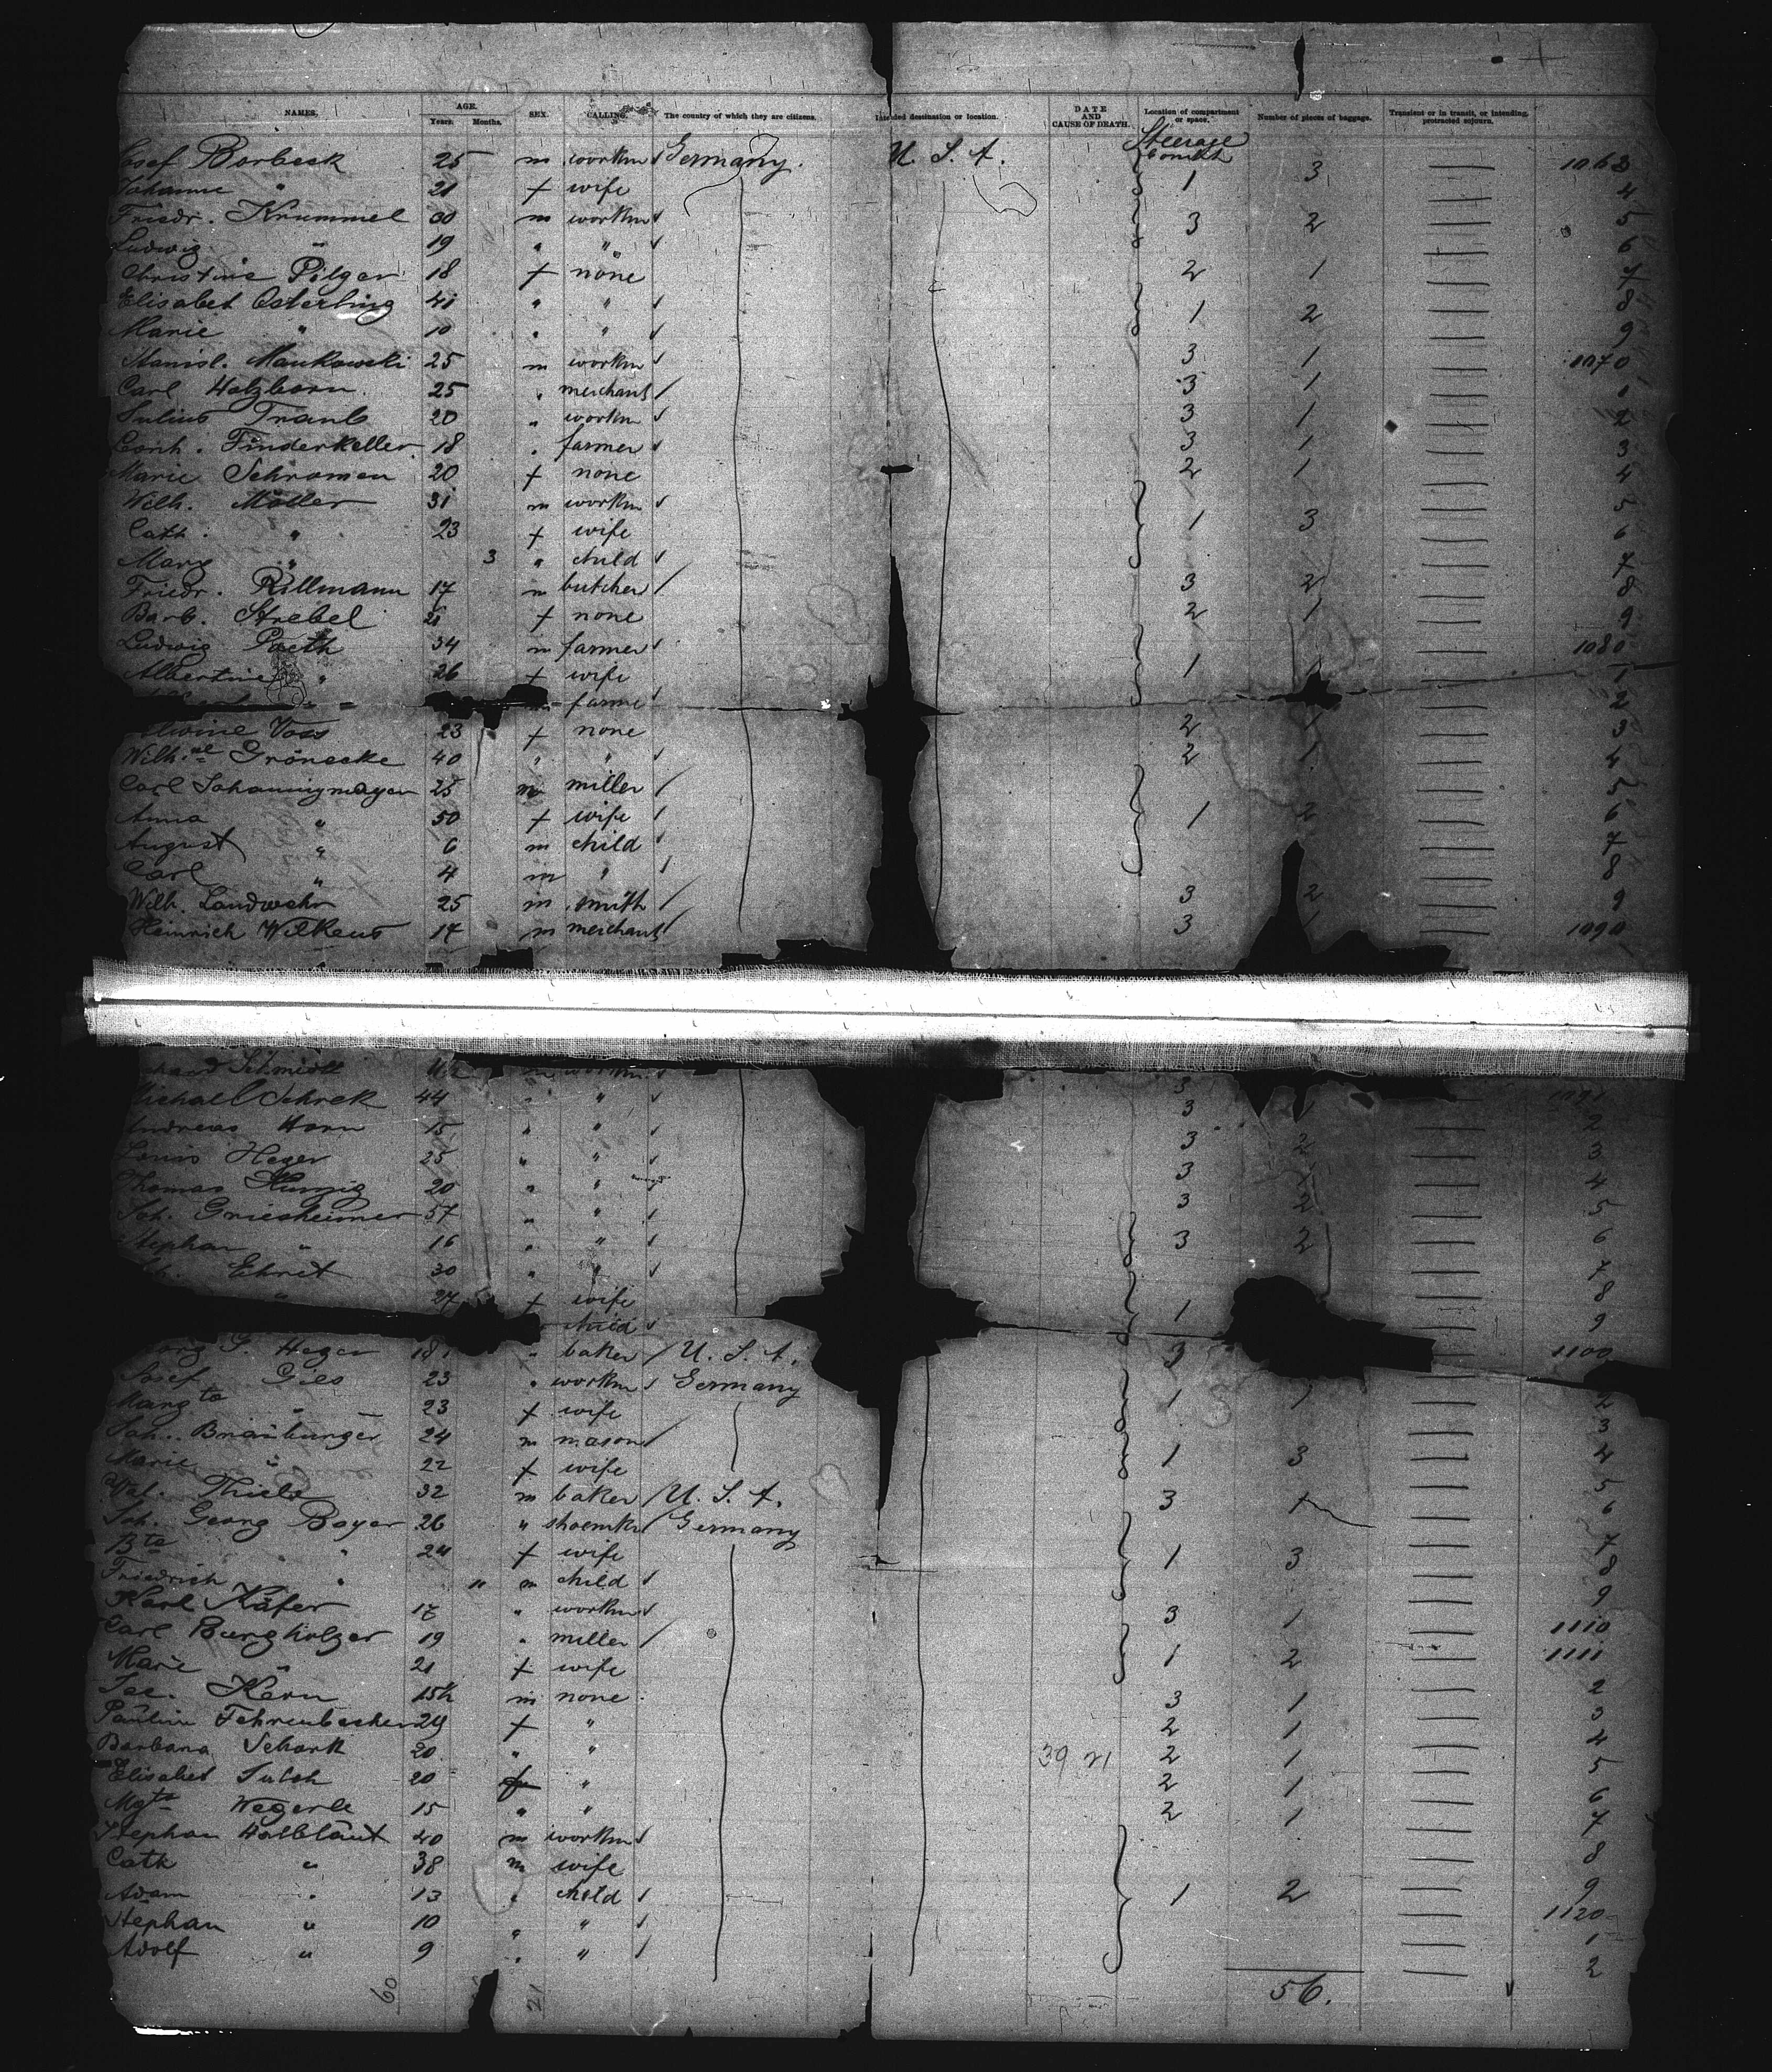 NAMES. AGE. Years. Months. SEX. CALLING. The country of which they are citizens. Intended destination or location. DATE AND CAUSE OF DEATH. Location of compartment or space. Number of pieces of baggage. Transient or in transit, or intending protracted sojourn.
Steerage
Josef Borbeck 25 m workm Germany. U. S. A. 1 3 1063
Johanne " 21 f wife 4
Friedr. Krummel 30 m workm 3 2 5
Ludwig " 19 " " 6
Christine Pilger 18 f none 2 1 7
Elisabet Osterling 41 " " 1 2 8
Marie " 10 " " 9
Stanisl. Mankowski 25 m workm 3 1 1070
Carl Holzborn 25 " merchant 3 1 1
Julius Traub 20 " workm 3 1 2
Conh. Finderkeller 18 " farmer 3 1 3
Marie Schramen 20 f none 2 1 4
Wilh. Möller 31 m workm 1 3 5
Cath. " 23 f wife 6
Marg " 3 " child 7
Friedr. Rillmann 17 m butcher 3 2 8
Barb. Strebel 21 f none 2 1 9
Ludwig Paeth 34 m farmer 1 1 1080
Albertine " 26 f wife 1
farme 2
Voss 23 f none 2 1 3
Wilh.ne Grönecke 40 " " 2 1 4
Carl Johanningmayer 25 m miller 1 2 5
Anna " 50 f wife 6
August " 6 m child 7
Carl " 4 m " 8
Wilh. Landwehr 25 m smith 3 2 9
Heinrich Wilkens 17 m merchant 3 1 1090
Schmidt m workm 3 1091
Michael Schrek 44 " " 3 1 2
Andreas Horn 15 " " 3 2 3
Louis Heger 25 " " 3 1 4
Thomas Kunzig 20 " " 3 2 5
Joh. Griesheimer 57 " " 3 2 6
Stephan " 16 " " 7
Ehret 30 " " 1 8
" 27 f wife 9
child 1100
G. Heger 18 " baker U. S. A. 3
Josef Gies 23 " workm Germany 1 1 2
Margta " 23 f wife 3
Joh. Braüburger 24 m mason 1 3 4
Marie " 22 f wife 5
Val. Thiele 32 m baker U. S. A. 3 1 6
Joh. Georg Bayer 26 " shoemkr Germany 1 3 7
Bta " 24 f wife 8
Friedrich " 11 m child 9
Karl Käfer 17 " workm 3 1 1110
Carl Burgholzer 19 " miller 1 2 1111
Marie " 21 f wife 2
Jac. Kern 15½ m none 3 1 3
Pauline Fehrenbecher 29 f " 2 1 4
Barbara Schork 20 " " 39 21 2 1 5
Elisabet 20 f " 2 1 6
Mgta Wegerle 15 " " 2 1 7
Stephan Halbläut 40 m workm 1 2 8
Cath " 38 m wife 9
Adam " 13 " child 1120
Stephan " 10 " " 1
Adolf " 9 " " 2
60 21 56.